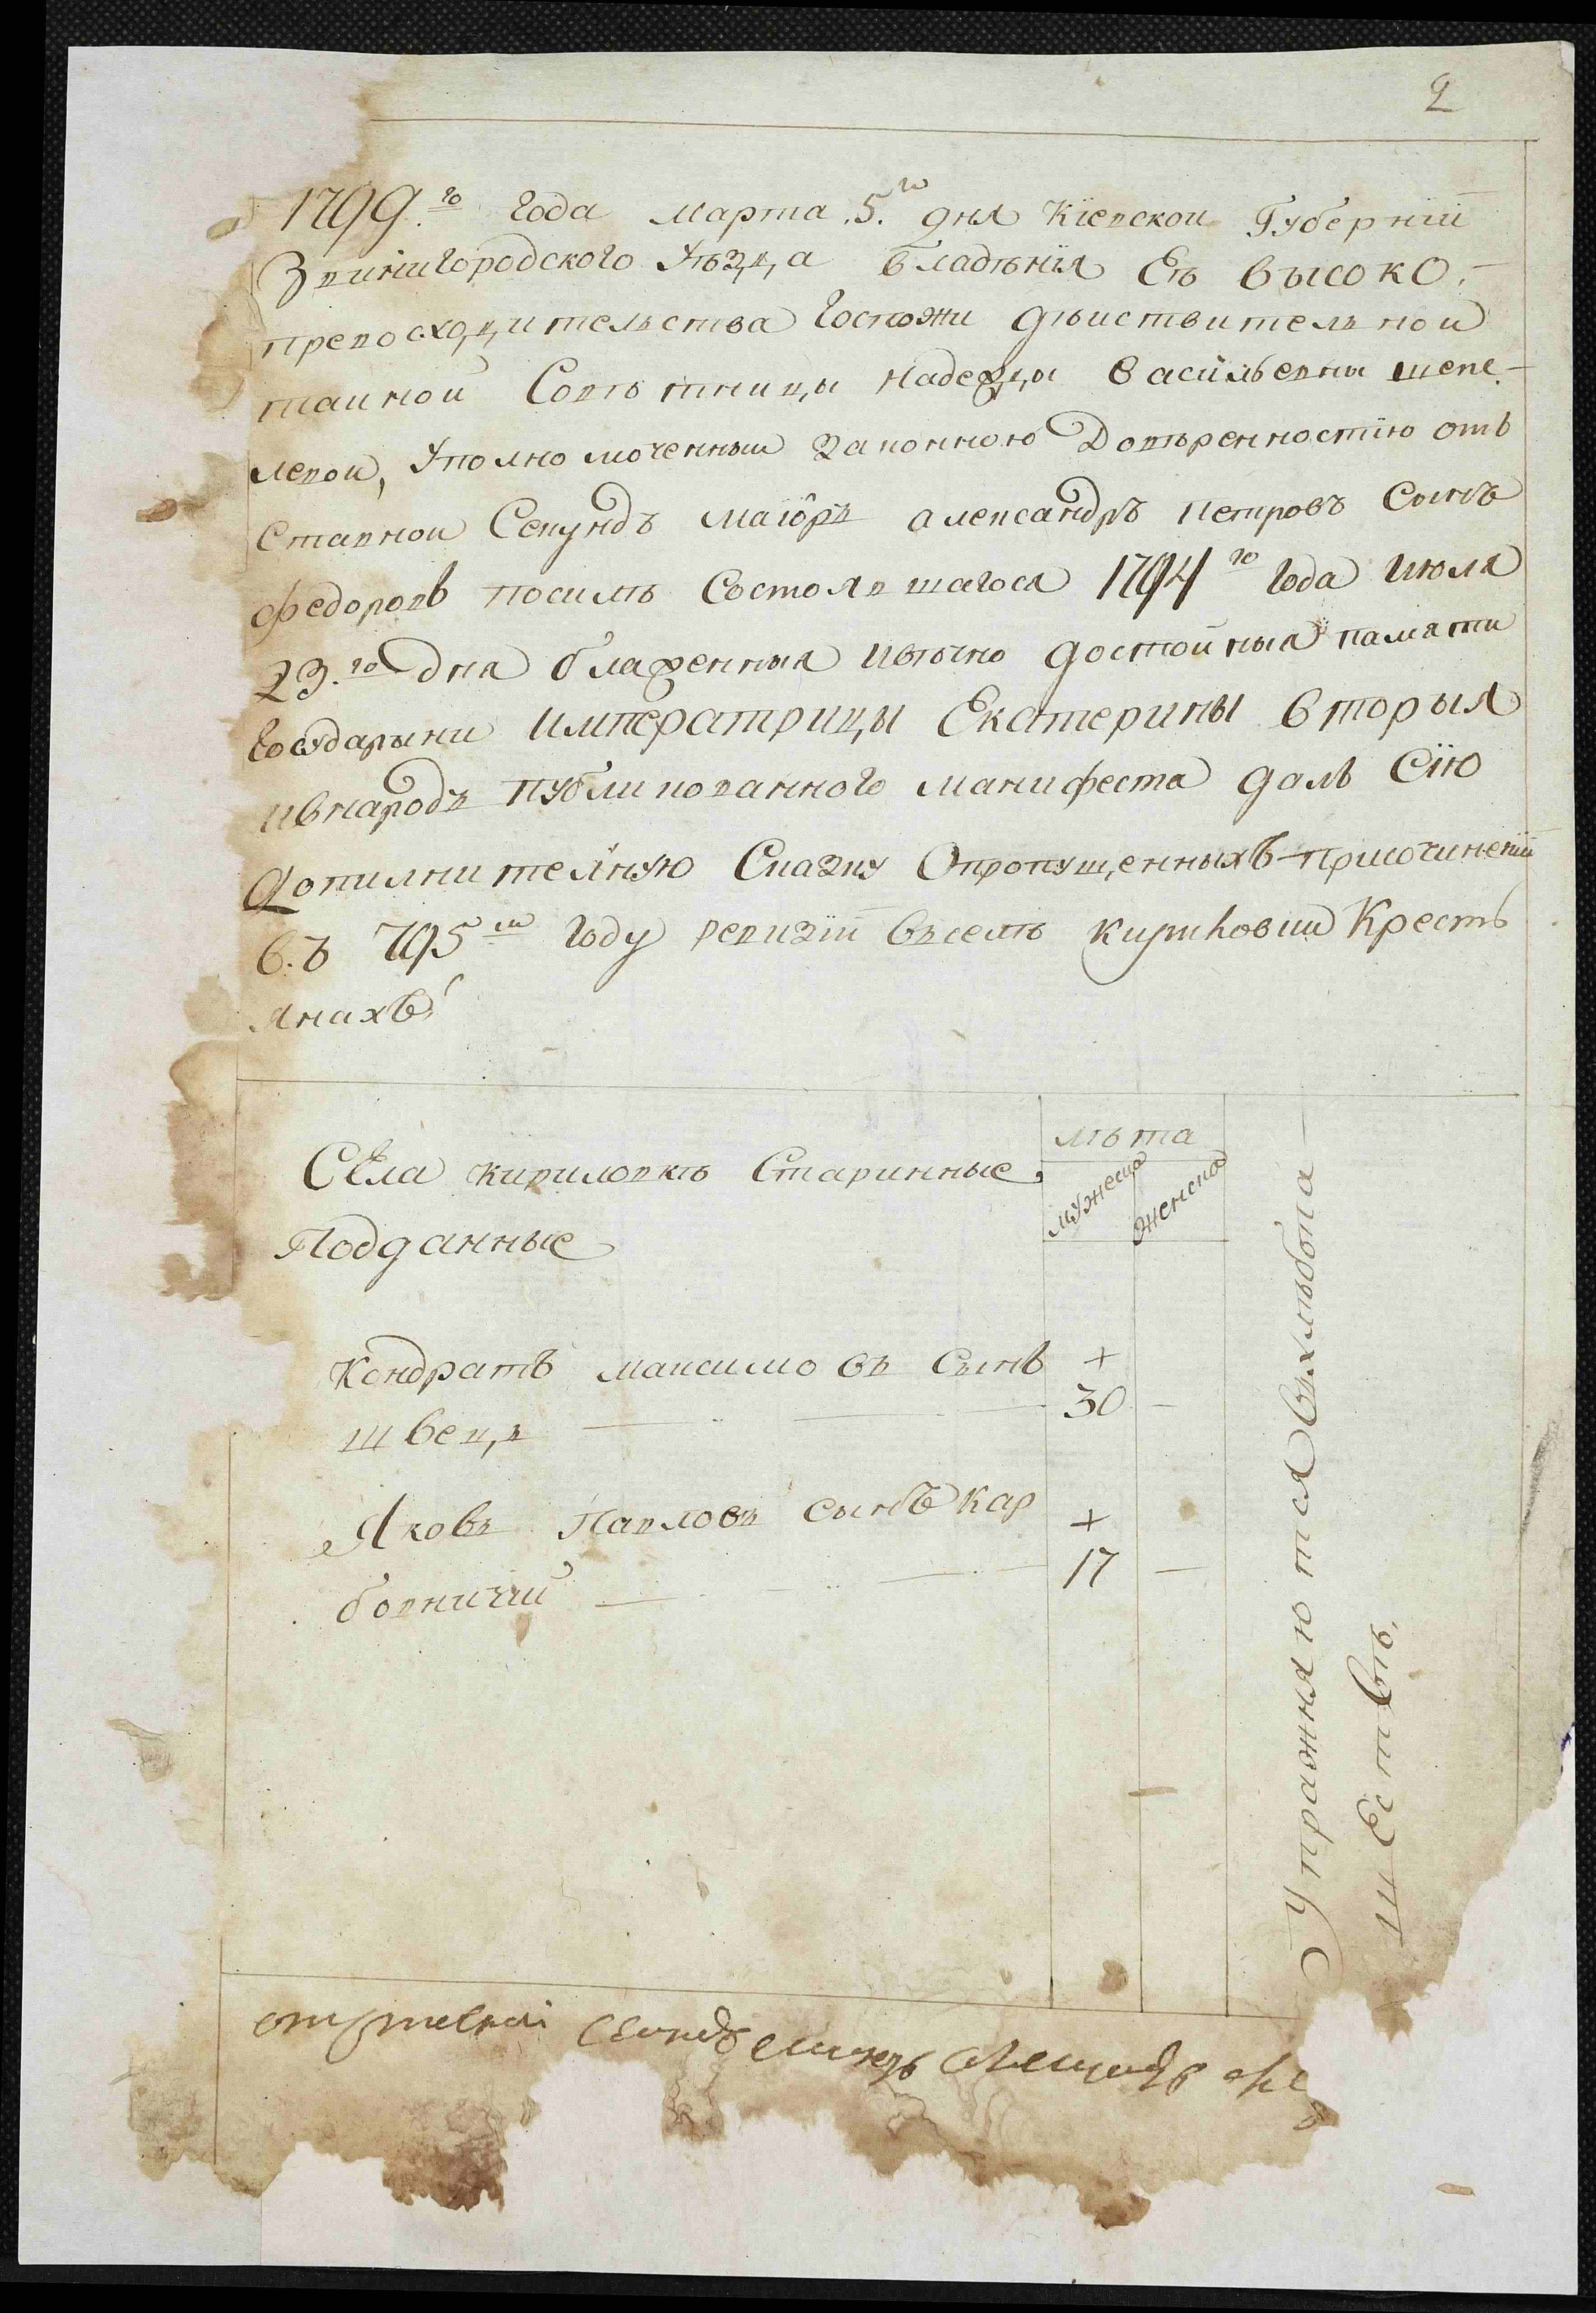 2
1799.го года марта 5.го дня Кіевской Губерніи
Звинигородского Уѣзда владѣнія Еѣ высоко-
превосходительства госпожи дѣиствительной
таиной Совѣтницы надежды Васильевны шепе-
левой, Уполномоченный законною Довѣренностію отъ
ставной Секундъ маіоръ александръ петровъ Сынъ
федоровъ посилѣ Состоявшагося 1794го года июля
23.го дня блаженныя ивѣчно достойныя памяти
Государыни императрицы Екатерины вторыя
ивнародъ публикованного манифеста далъ Сію
Дополнителную Сказку Опропущенныхъ присочиненіи
въ 795м году ревизіи вселѣ Кирилловки Кресть
янахъ
Села кириловкѣ Старинные
Подданные
лѣта
мужеска
женска
Кондратъ максимовъ Сынъ
швецъ
+
30
Яковъ Павловъ сынъ Кар
бовничіи
+
17
Упражняются вхлѣбопа-
шествѣ.
отставной Секундъ маиоръ Александръ